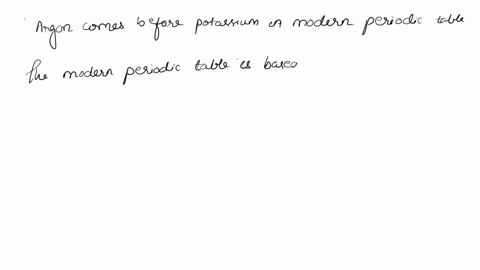 Argon comes before potassium in modern periodic table.
The modern periodic table is based